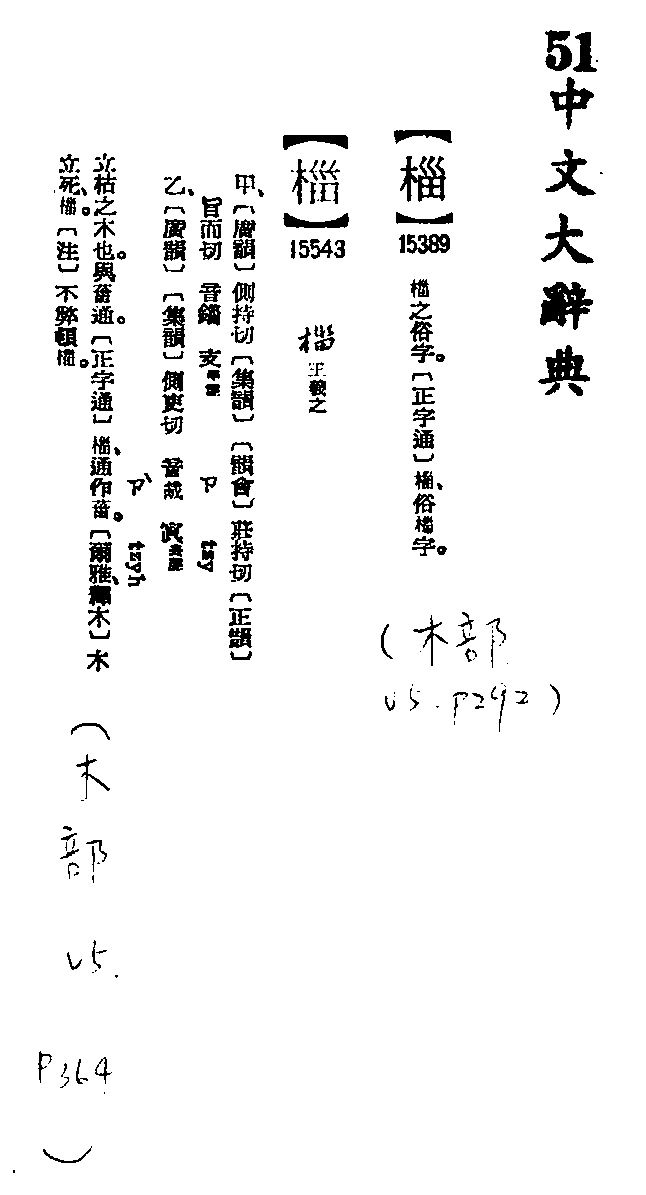 51中文大辭典
【椔】15389 椔之俗字。〔正字通〕椔、俗椔字。
(木部
V5. P292)
【椔】15543 椔 王羲之
甲、〔廣韻〕側持切〔集韻〕〔韻會〕莊持切〔正韻〕
旨而切 音錙 支平聲 ㄗ tzy
乙、〔廣韻〕〔集韻〕側吏切 音胾 寘去聲
ㄗˋ tzyh
立枯之木也。與菑通。〔正字通〕椔、通作菑。〔爾雅、釋木〕木
立死、椔。〔注〕不弊頓椔。
(木部 V5. P364)